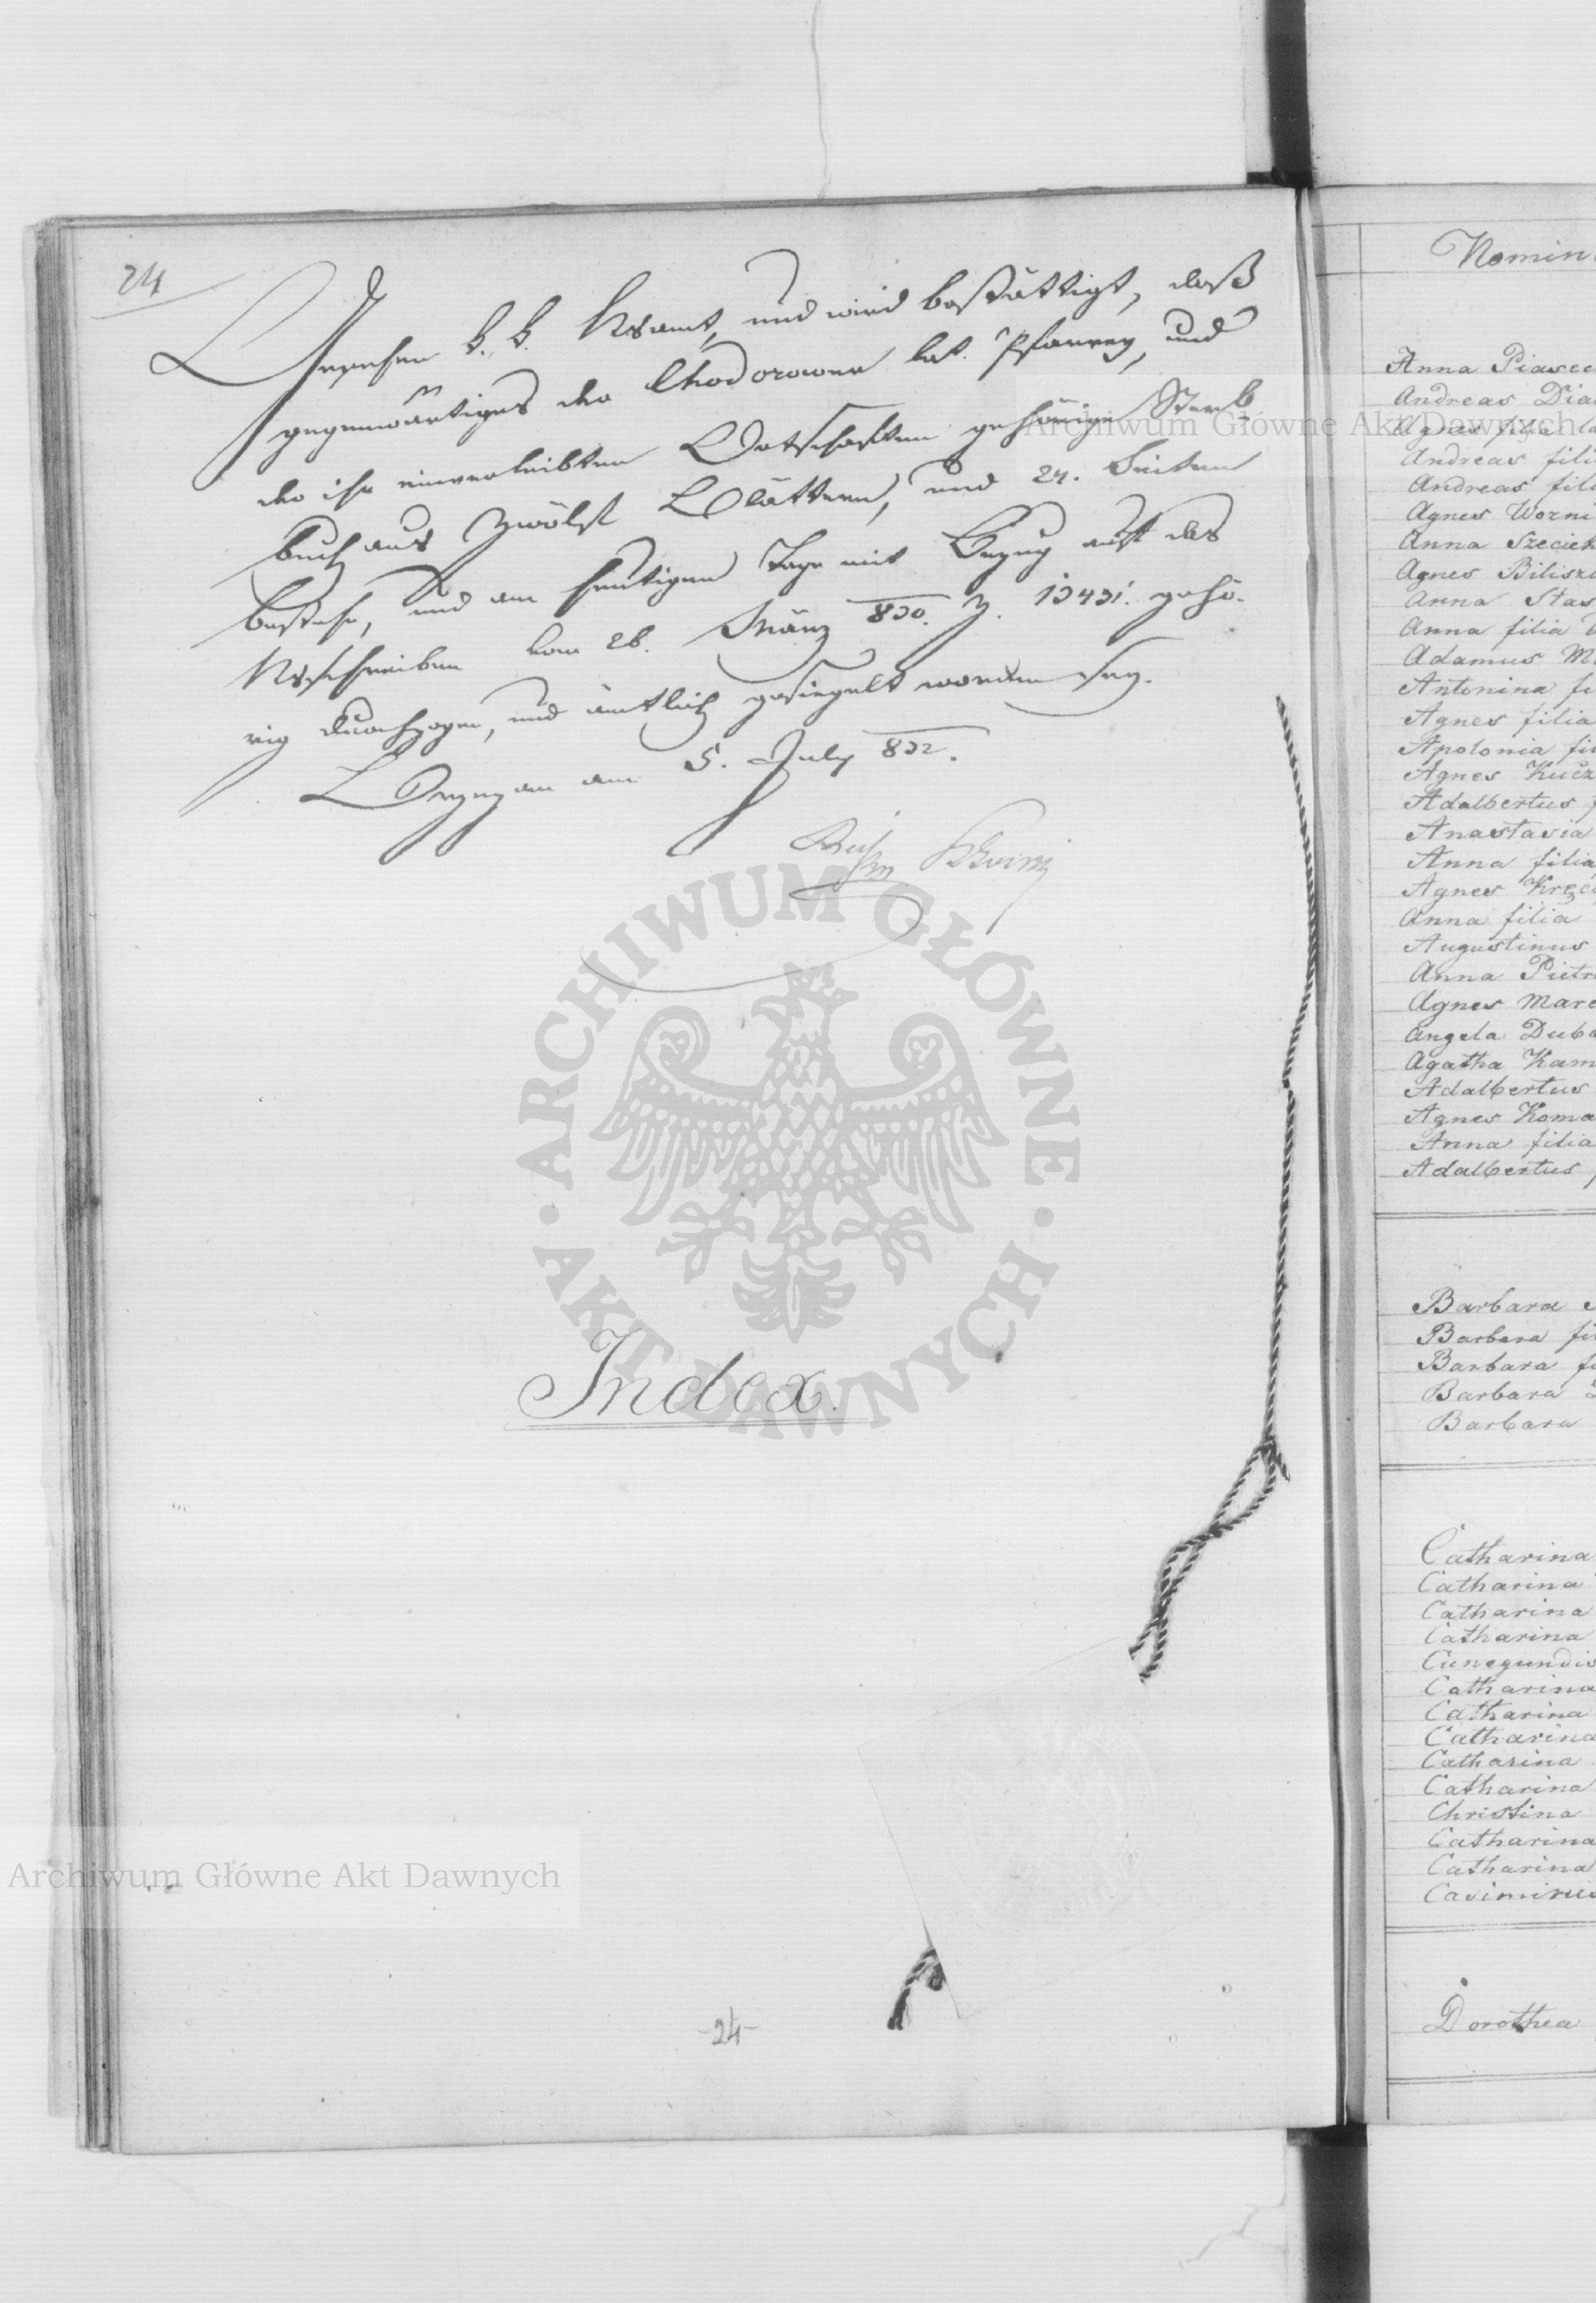 24
Gesehen k. k. Ksamt, und wird bestättigt, daß
gegenwärtiges der Chodorower lat. Pfarrey, und
der ihr einverleibten Ortschaften gehörige Sterb
buch aus zwölf Blättern, und 24. Seiten
bestehe, und am heutigen Tage mit Bezug auf das
Ksschreiben vom 26. März 830. Z. 13431. gehö-
rig durchzogen, und ämtlich gesiegelt worden sey.
Brzezan am 5. July 832.
Index.
-24-
Nomin
Anna Piasec
Andreas
Agnes filia
Andreas fili
Andreas fili
Agnes Wozni
Anna Szeciek
Agnes Bilisz
Anna Stas
Anna filia
Adamus M
Antonina fi
Agnes filia
Apolonia fi
Agnes Kucz
Adalbertus f
Anastasia
Anna filia
Agnes Kręc
Anna filia
Augustinus
Anna Pietr
Agnes Marc
Angela Duba
Agatha Kam
Adalbertus
Agnes Koma
Anna filia
Adalbertus f
Barbara
Barbara fi
Barbara fi
Barbara
Barbara
Catharina
Catharina
Catharina
Catharina
Cunegundis
Catharina
Catharina
Catharina
Catharina
Catharina
Christina
Catharina
Catharina
Casimirus
Dorothea
Archiwum Główne Akt Dawnych
ARCHIWUM GŁÓWNE
AKT DAWNYCH
Archiwum Główne Akt Dawnych